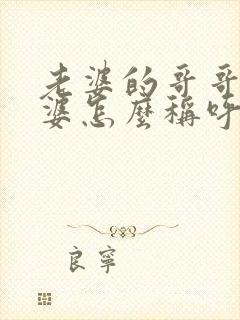 老婆的哥哥
婆怎麼稱呼
良寧